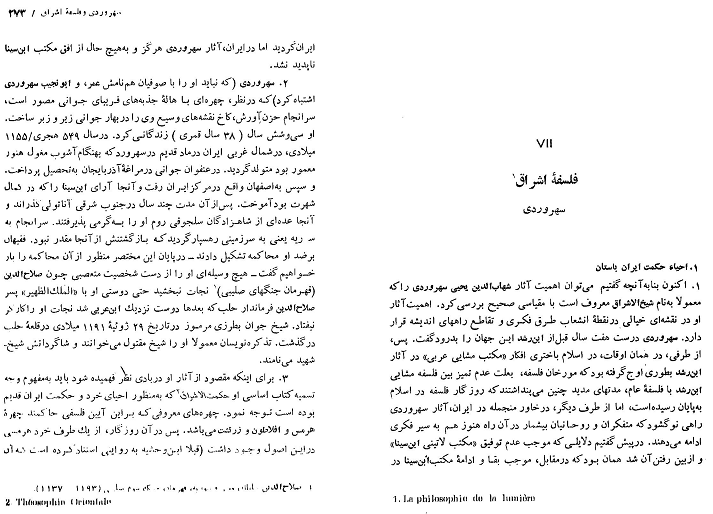 VII
فلسفهٔ اشراق¹
سهروردی
۱. احیاء حکمت ایران باستان
۱. اکنون بنابه آنچه گفتیم می‌توان اهمیت آثار شهاب‌الدین یحیی سهروردی را که
معمولا به‌نام شیخ‌الاشراق معروف است با مقیاسی صحیح بررسی کرد. اهمیت آثار
او در نقشه‌ای خیالی در نقطهٔ انشعاب طرق فکری و تقاطع راههای اندیشه قرار
دارد. سهروردی درست هفت سال قبل از ابن رشد این جهان را بدرود گفت. پس،
از طرفی، در همان اوقات، در اسلام باختری افکار «مکتب مشایی عربی» در آثار
ابن رشد بطوری اوج گرفته بود که مورخان فلسفه، بعلت عدم تمیز بین فلسفه مشایی
ابن رشد با فلسفهٔ عام، مدتهای مدید چنین می‌پنداشتند که روزگار فلسفه در اسلام
به‌پایان رسیده‌است، اما از طرف دیگر، در خاور منجمله در ایران، آثار سهروردی
راهی نو گشود که متفکران و روحانیان بیشمار در آن راه هنوز هم به سیر فکری
ادامه می‌دهند. در پیش گفتیم دلایلی که موجب عدم توفیق «مکتب لاتینی ابن‌سینا»
و از بین رفتن آن شد همان بود که در مقابل، موجب بقا و ادامهٔ مکتب ابن‌سینا در
1. La philosophie de la lumière
سهروردی و فلسفهٔ اشراق / ۲۷۳
ایران گردید اما در ایران، آثار سهروردی هرگز و به‌هیچ حال از افق مکتب ابن‌سینا
ناپدید نشد.
۲. سهروردی (که نباید او را با صوفیان هم‌نامش عمر، و ابونجیب سهروردی
اشتباه کرد) که در نظر، چهره‌ای با هالهٔ جذبه‌های فریبای جوانی مصور است،
سرانجام حزن‌آورش، کاخ نقشه‌های وسیع وی را در بهار جوانی زیر و زبر ساخت.
او سی‌وشش سال (۳۸ سال قمری) زندگانی کرد. در سال ۵۴۹ هجری/۱۱۵۵
میلادی، در شمال غربی ایران در ماد قدیم در سهرورد که بهنگام آشوب مغول هنوز
معمور بود متولد گردید. در عنفوان جوانی در مراغهٔ آذربایجان به‌تحصیل پرداخت.
و سپس به‌اصفهان واقع در مرکز ایران رفت و آنجا آرای ابن‌سینا را که در کمال
شهرت بود آموخت. پس از آن مدت چند سال در جنوب شرقی آناتولی گذراند و
آنجا عده‌ای از شاهزادگان سلجوقی روم او را به‌گرمی پذیرفتند. سرانجام به
سوریه یعنی به سرزمینی رهسپار گردید که بازگشتنش از آنجا مقدر نبود. فقیهان
بر ضد او محاکمه تشکیل دادند ــ در پایان این مختصر منظور از آن محاکمه را باز
خواهیم گفت ــ هیچ وسیله‌ای او را از دست شخصیت متعصبی چون صلاح‌الدین
(قهرمان جنگهای صلیبی)¹ نجات نبخشید حتی دوستی او با «الملک‌الظهیر» پسر
صلاح‌الدین فرماندار حلب که بعدها دوست نزدیك ابن‌عربی شد نجات او را کارگر
نیفتاد. شیخ جوان بطرزی مرموز در تاریخ ۲۹ ژوئیهٔ ۱۱۹۱ میلادی در قلعهٔ حلب
درگذشت. تذکره‌نویسان معمولا او را شیخ مقتول می‌خوانند و شاگردانش شیخ
شهید می‌نامند.
۳. برای اینکه مقصود از آثار او در بادی نظر فهمیده شود باید به‌مفهوم وجه
تسمیه کتاب اساسی او حکمت‌الاشراق² که به‌منظور احیای خرد و حکمت ایران قدیم
بوده است توجه نمود. چهره‌های معروفی که بر این آیین فلسفی حاکمند چهرهٔ
هرمس و افلاطون و زرتشت می‌باشد. پس در آن روزگار، از یك طرف خرد هرمسی
در این اصول وجود داشت (قبلا ابن‌وحشیه به روایتی استناد کرده است که آن
۱. صلاح‌الدین (۱۱۹۳ – ۱۱۳۷).
2. Théosophie Orientale